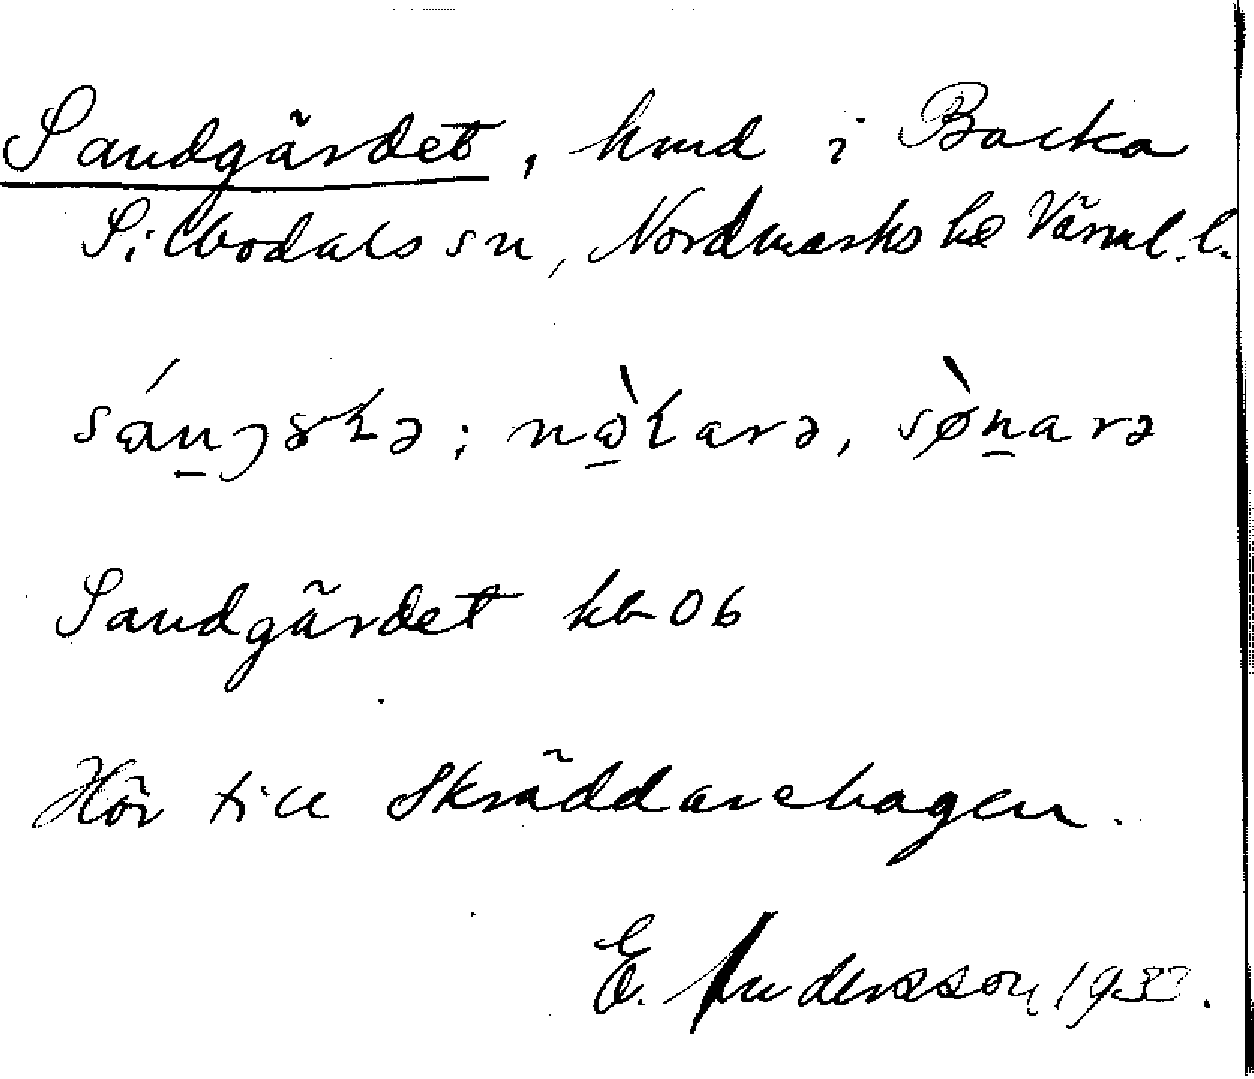 Sandgärdet, hmd i Backa
Silbodals sn, Nordmarks hd Värml. l.
Sandgärdet kb 06
Hör till Skräddarehagen.
E. Andersson 1933.